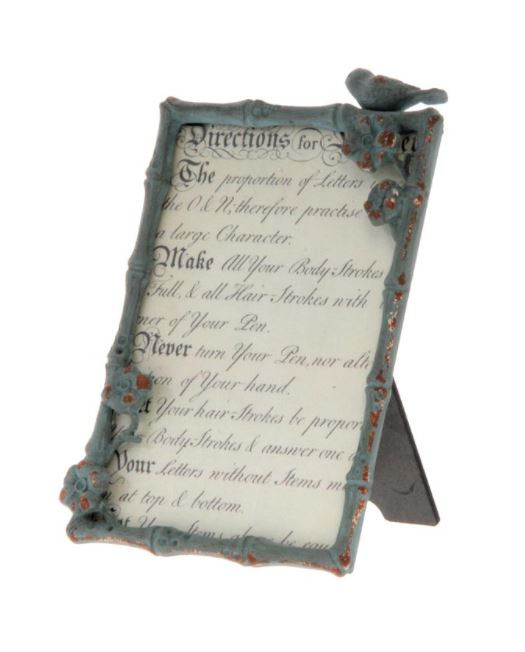 Directions for
The proportion of Letters
the O & N, therefore practise
a large Character.
Make All Your Body Strokes
Full, & all Hair Strokes with
ner of Your Pen.
Never turn Your Pen, nor alte
on of Your hand.
t Your hair Strokes be propor
Body Strokes & answer one
Your Letters without Items m
at top & bottom.
Items be equ